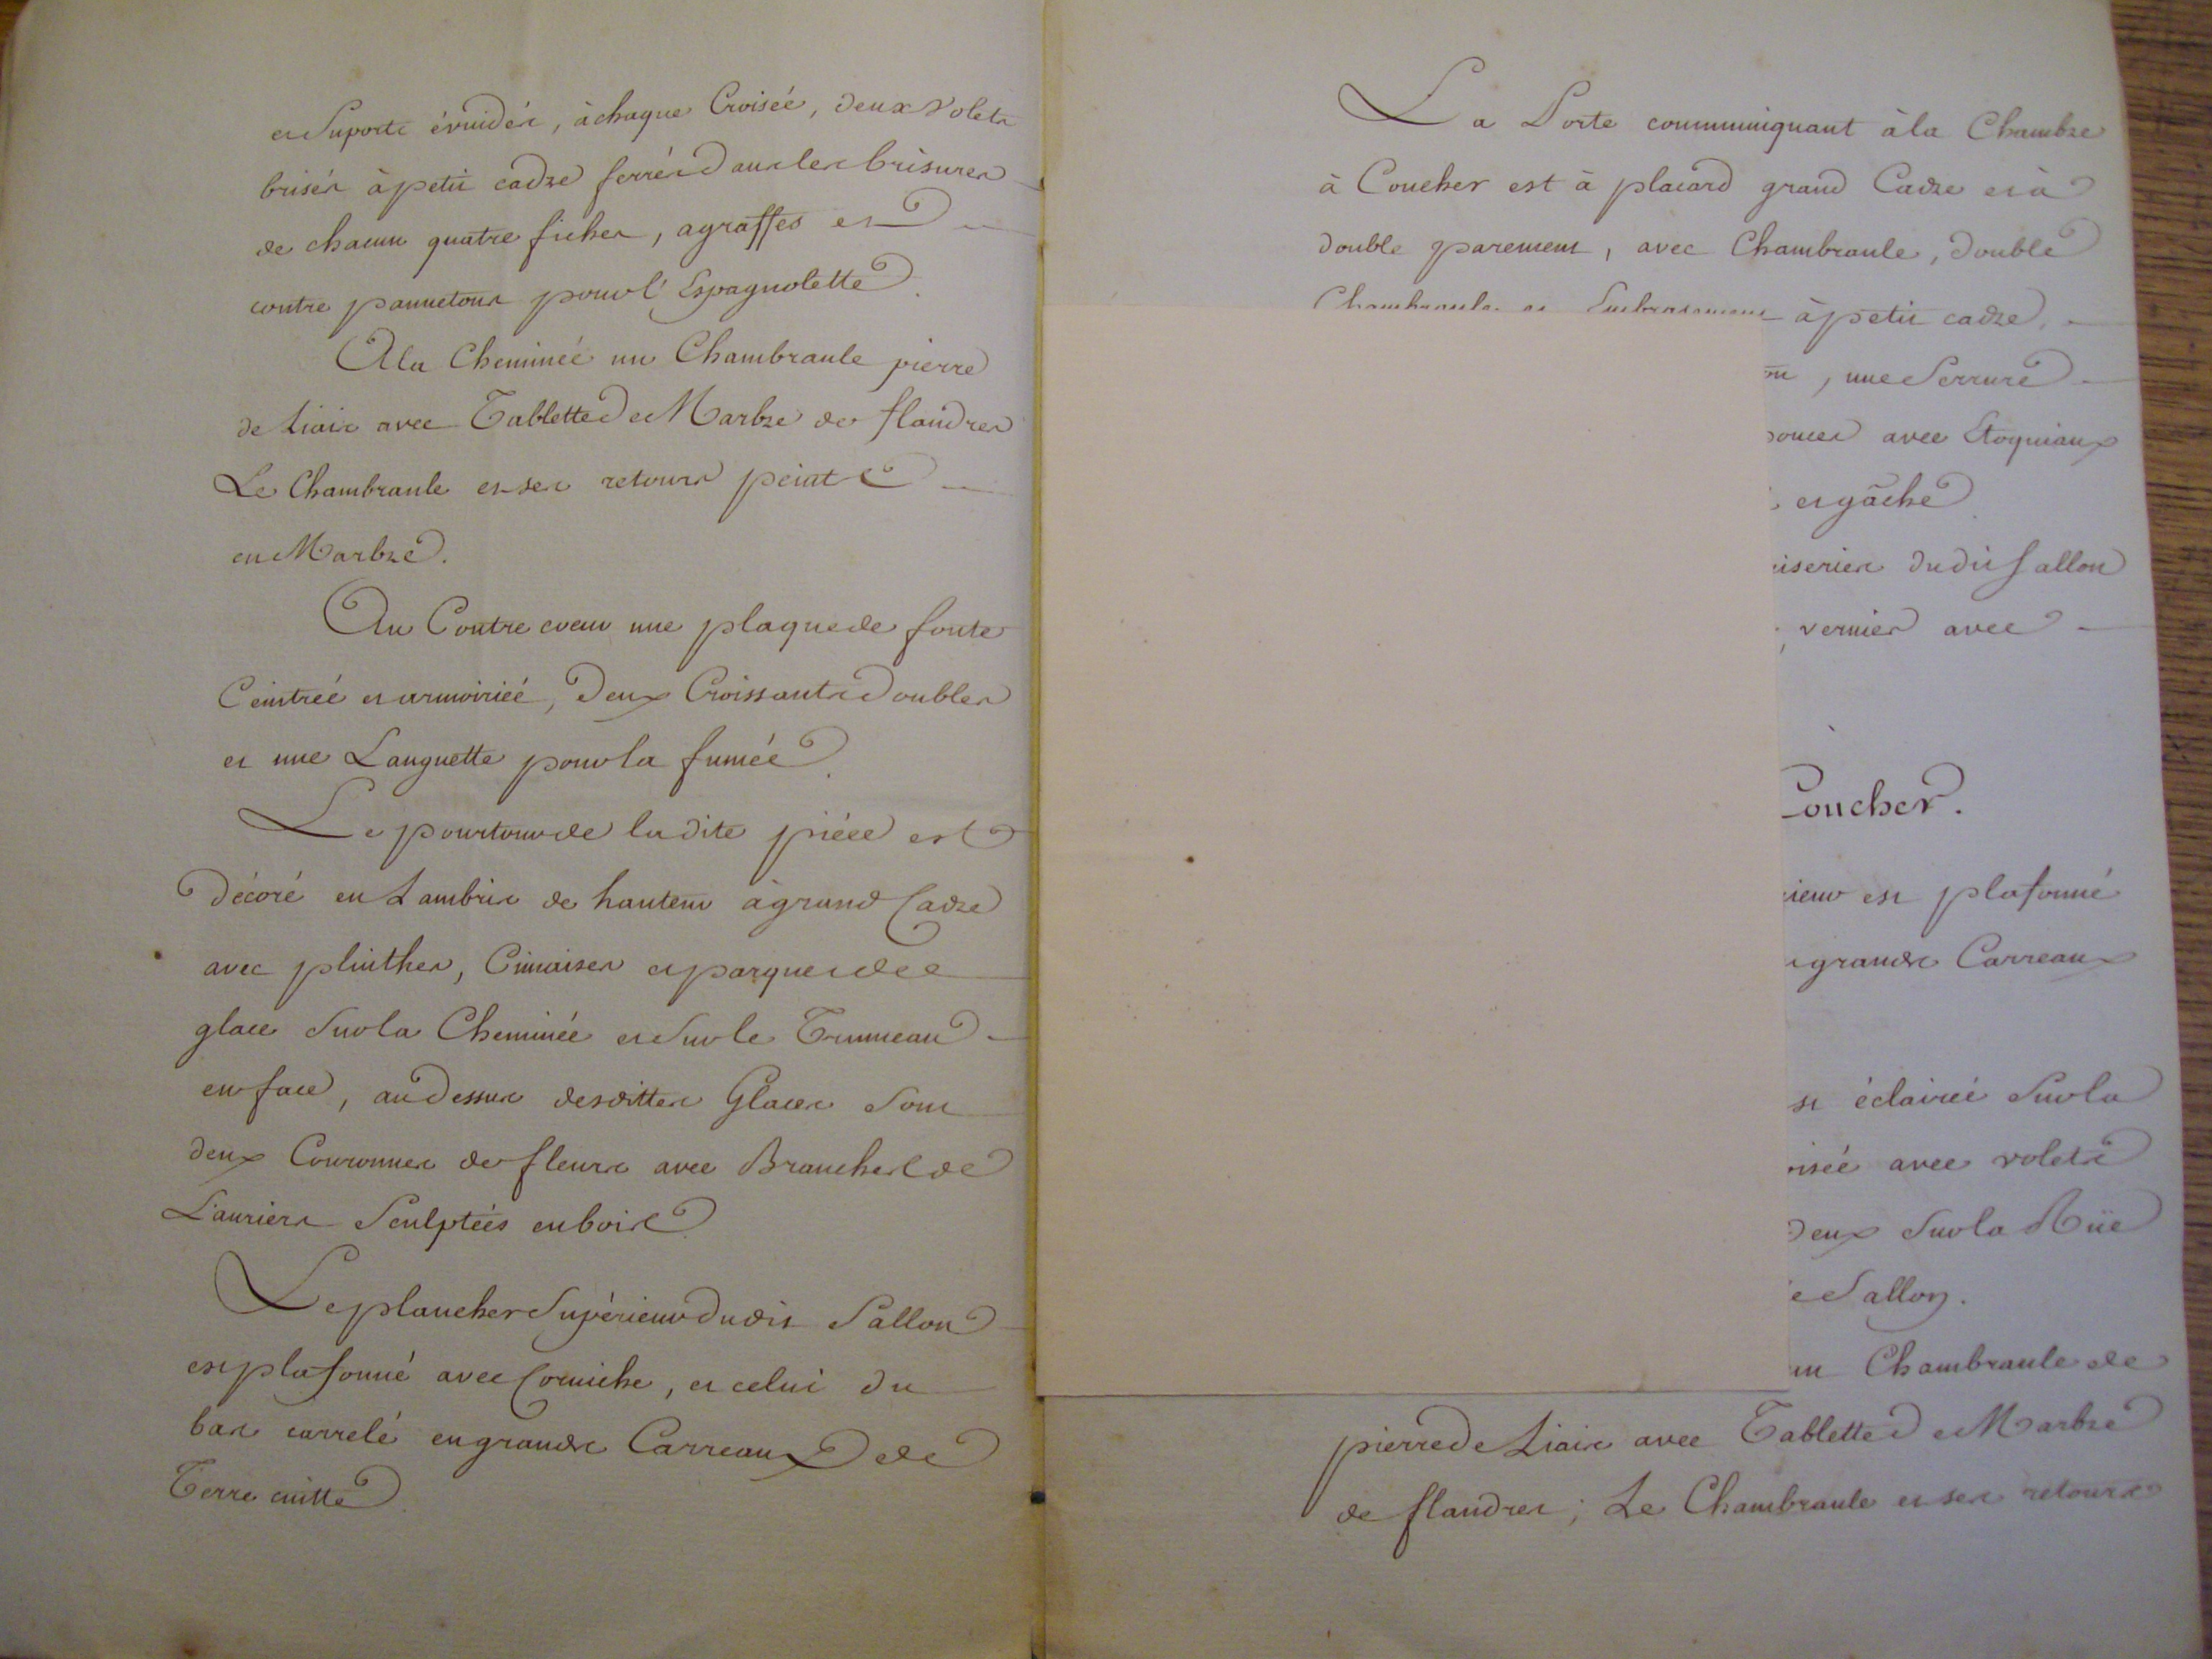 et Suports évuidés, à chaque Croiseé, deux Volets
brisés à petit cadre ferrés dans les brisures
de chacun quatre fiches, agraffes et
contre pannetons pour l'Espagnolette.
A la Chemineé un Chambranle pierre
de Liais avec Tablette de Marbre de flandres
Le Chambranle et ses retours peints
en Marbre.
Au Contre coeur une plaque de fonte
Ceintreé et armoirieé, deux Croissants doubles
et une Languette pour la fumée.
Le pourtour de la dite piéce est
décoré en Lambris de hauteur à grand Cadre
avec plinthes, Cimaises et parquet de
glace Sur la Cheminée et Sur le Trumeau
en face, au dessus desdittes Glaces Sont
deux Couronnes de fleurs avec Branches de
Lauriers Sculpteés en bois.
Le plancher Supérieur dudit Sallon
est plafonné avec Corniche, et celui du
bas carrelé en grands Carreaux de
Terre cuitte.
La Porte communiquant à la Chambre
à Coucher est à placard grand Cadre et à
double parement, avec Chambranle, double
Chambranle et Embrasement à petit cadre.
, une Serrure
avec Etoquiaux
et gâche
dudit Sallon
, vernies avec
Coucher.
est plafonné
grands Carreaux
éclaireé Sur la
avec volets
deux Sur la Rüe
Sallon.
un Chambranle de
pierre de Liais avec Tablette de Marbre
de flandres ; Le Chambranle et ses retours